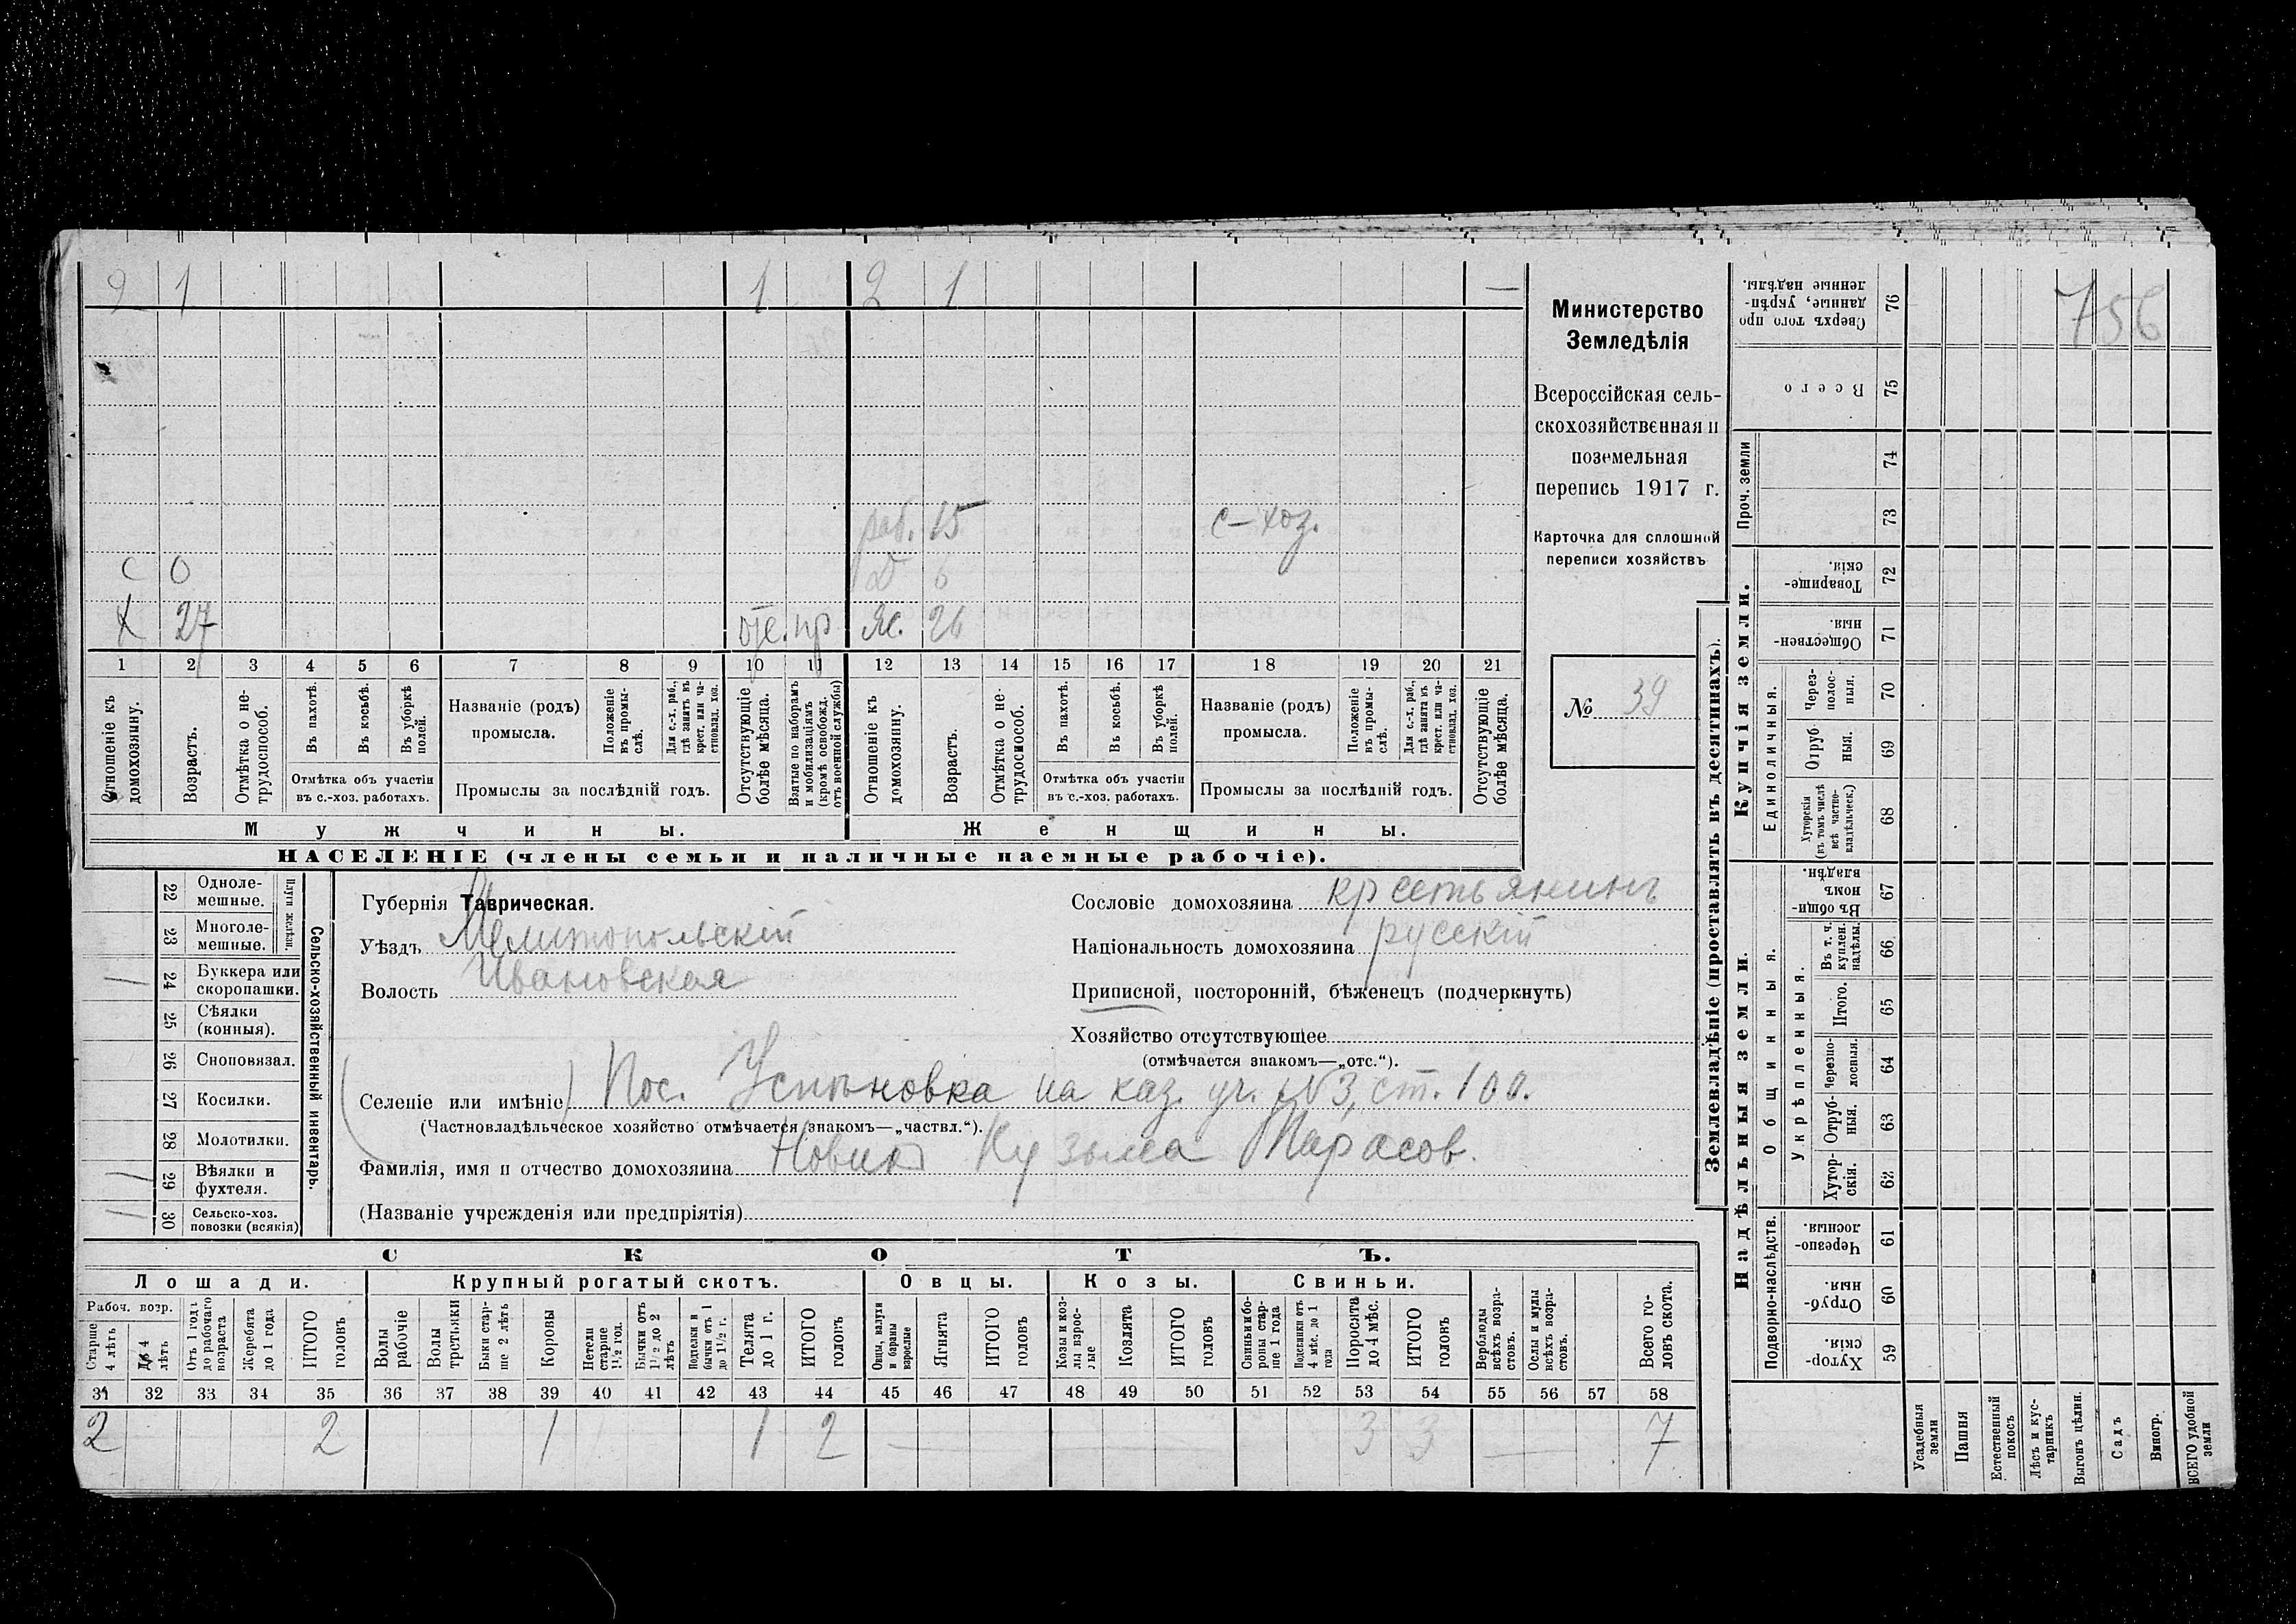 2 1 1 2 1 —
раб. 15 с-хоз.
С 0 д 6
Х 27 отс. пр ж. 26
1 2 3 4 5 6 7 8 9 10 11 12 13 14 15 16 17 18 19 20 21
Отношеніе къ домохозяину.
Возрастъ.
Отмѣтка о нетрудоспособ.
Въ пахотѣ.
Въ косьбѣ.
Въ уборкѣ полей.
Отмѣтка объ участіи въ с.-хоз. работахъ.
Названіе (родъ) промысла.
Положеніе въ промыслѣ.
Для с.-х. раб., гдѣ занятъ въ крест. или частновлад. хоз.
Промыслы за послѣдній годъ.
Отсутствующіе болѣе мѣсяца.
Взятые по наборамъ и мобилизаціямъ (кромѣ освобожд. отъ военной службы)
Отношеніе къ домохозяину.
Возрастъ.
Отмѣтка о нетрудоспособ.
Въ пахотѣ.
Въ косьбѣ.
Въ уборкѣ полей.
Отмѣтка объ участіи въ с.-хоз. работахъ.
Названіе (родъ) промысла.
Положеніе въ промыслѣ.
Для с.-х. раб., гдѣ занята въ крест. или частновлад. хоз.
Промыслы за послѣдній годъ.
Отсутствующіе болѣе мѣсяца.
Мужчины. Женщины.
НАСЕЛЕНІЕ (члены семьи и наличные наемные рабочіе).
Министерство
Земледѣлія
Всероссійская сель-
скохозяйственная и
поземельная
перепись 1917 г.
Карточка для сплошной
переписи хозяйствъ
№ 39
22 Одноле-мешные.
23 Многоле-мешные.
Плуги желѣзн.
24 Буккера или скоропашки. 1
25 Сѣялки (конныя).
26 Сноповязал.
27 Косилки.
28 Молотилки.
29 Вѣялки и фухтеля. 1
30 Сельско-хоз. повозки (всякія) 1
Сельско-хозяйственный инвентарь.
Губернія Таврическая.
Уѣздъ Мелитопольскій
Волость Ивановская
Сословіе домохозяина крестьянинъ
Національность домохозяина русскій
Приписной, посторонній, бѣженецъ (подчеркнуть)
Хозяйство отсутствующее
(отмѣчается знакомъ—„отс.“).
(Селеніе или имѣніе) Пос. на каз. уч. №3, ст. 100.
(Частновладѣльческое хозяйство отмѣчается знакомъ—„частвл.“).
Фамилія, имя и отчество домохозяина Кузьма
(Названіе учрежденія или предпріятія)
СКОТЪ.
Лошади. Крупный рогатый скотъ. Овцы. Козы. Свиньи.
Рабоч. возр.
Старше 4 лѣтъ
До 4 лѣтъ
Отъ 1 года до рабочаго возраста
Жеребята до 1 года
ИТОГО головъ
Волы рабочіе
Волы третьяки
Быки старше 2 лѣтъ
Коровы
Нетели старше 1½ год.
Бычки отъ 1½ до 2 лѣтъ
Подтелки и бычки отъ 1 до 1½ г.
Телята до 1 г.
ИТОГО головъ
Овцы, валухи и бараны взрослые
Ягнята
ИТОГО головъ
Козы и козлы взрослые
Козлята
ИТОГО головъ
Свиньи и бороны старше 1 года
Подсвинки отъ 4 мѣс. до 1 года
Поросята до 4 мѣс.
ИТОГО головъ
Верблюды всѣхъ возрастовъ.
Ослы и мулы всѣхъ возрастовъ.
Всего головъ скота.
31 32 33 34 35 36 37 38 39 40 41 42 43 44 45 46 47 48 49 50 51 52 53 54 55 56 57 58
2 2 1 1 2 — — 3 3 — 7
Землевладѣніе (проставлять въ десятинахъ).
Надѣльныя земли. Купчія земли.
Проч. земли
Подворно-наслѣдств.
Общинныя.
Укрѣпленныя.
Единоличныя.
76 Сверхъ того проданные, укрѣпленные надѣлы.
75 Всего
74
73
72 Товарищескія.
71 Общественныя.
70 Черезполосныя.
69 Отрубныя.
68 Хуторскія (въ томъ числѣ всѣ частновладѣльческ.)
67 Въ общинномъ владѣн.
66 Въ т. ч. куплен. надѣлы.
65 Итого.
64 Черезполосныя.
63 Отрубныя.
62 Хуторскія.
61 Черезполосныя
60 Отрубныя.
59 Хуторскія.
Усадебныя земли
Пашня
Естественный покосъ
Лѣсъ и кустарникъ
Выгонъ цѣлин.
Садъ
Виногр.
ВСЕГО удобной земли
756